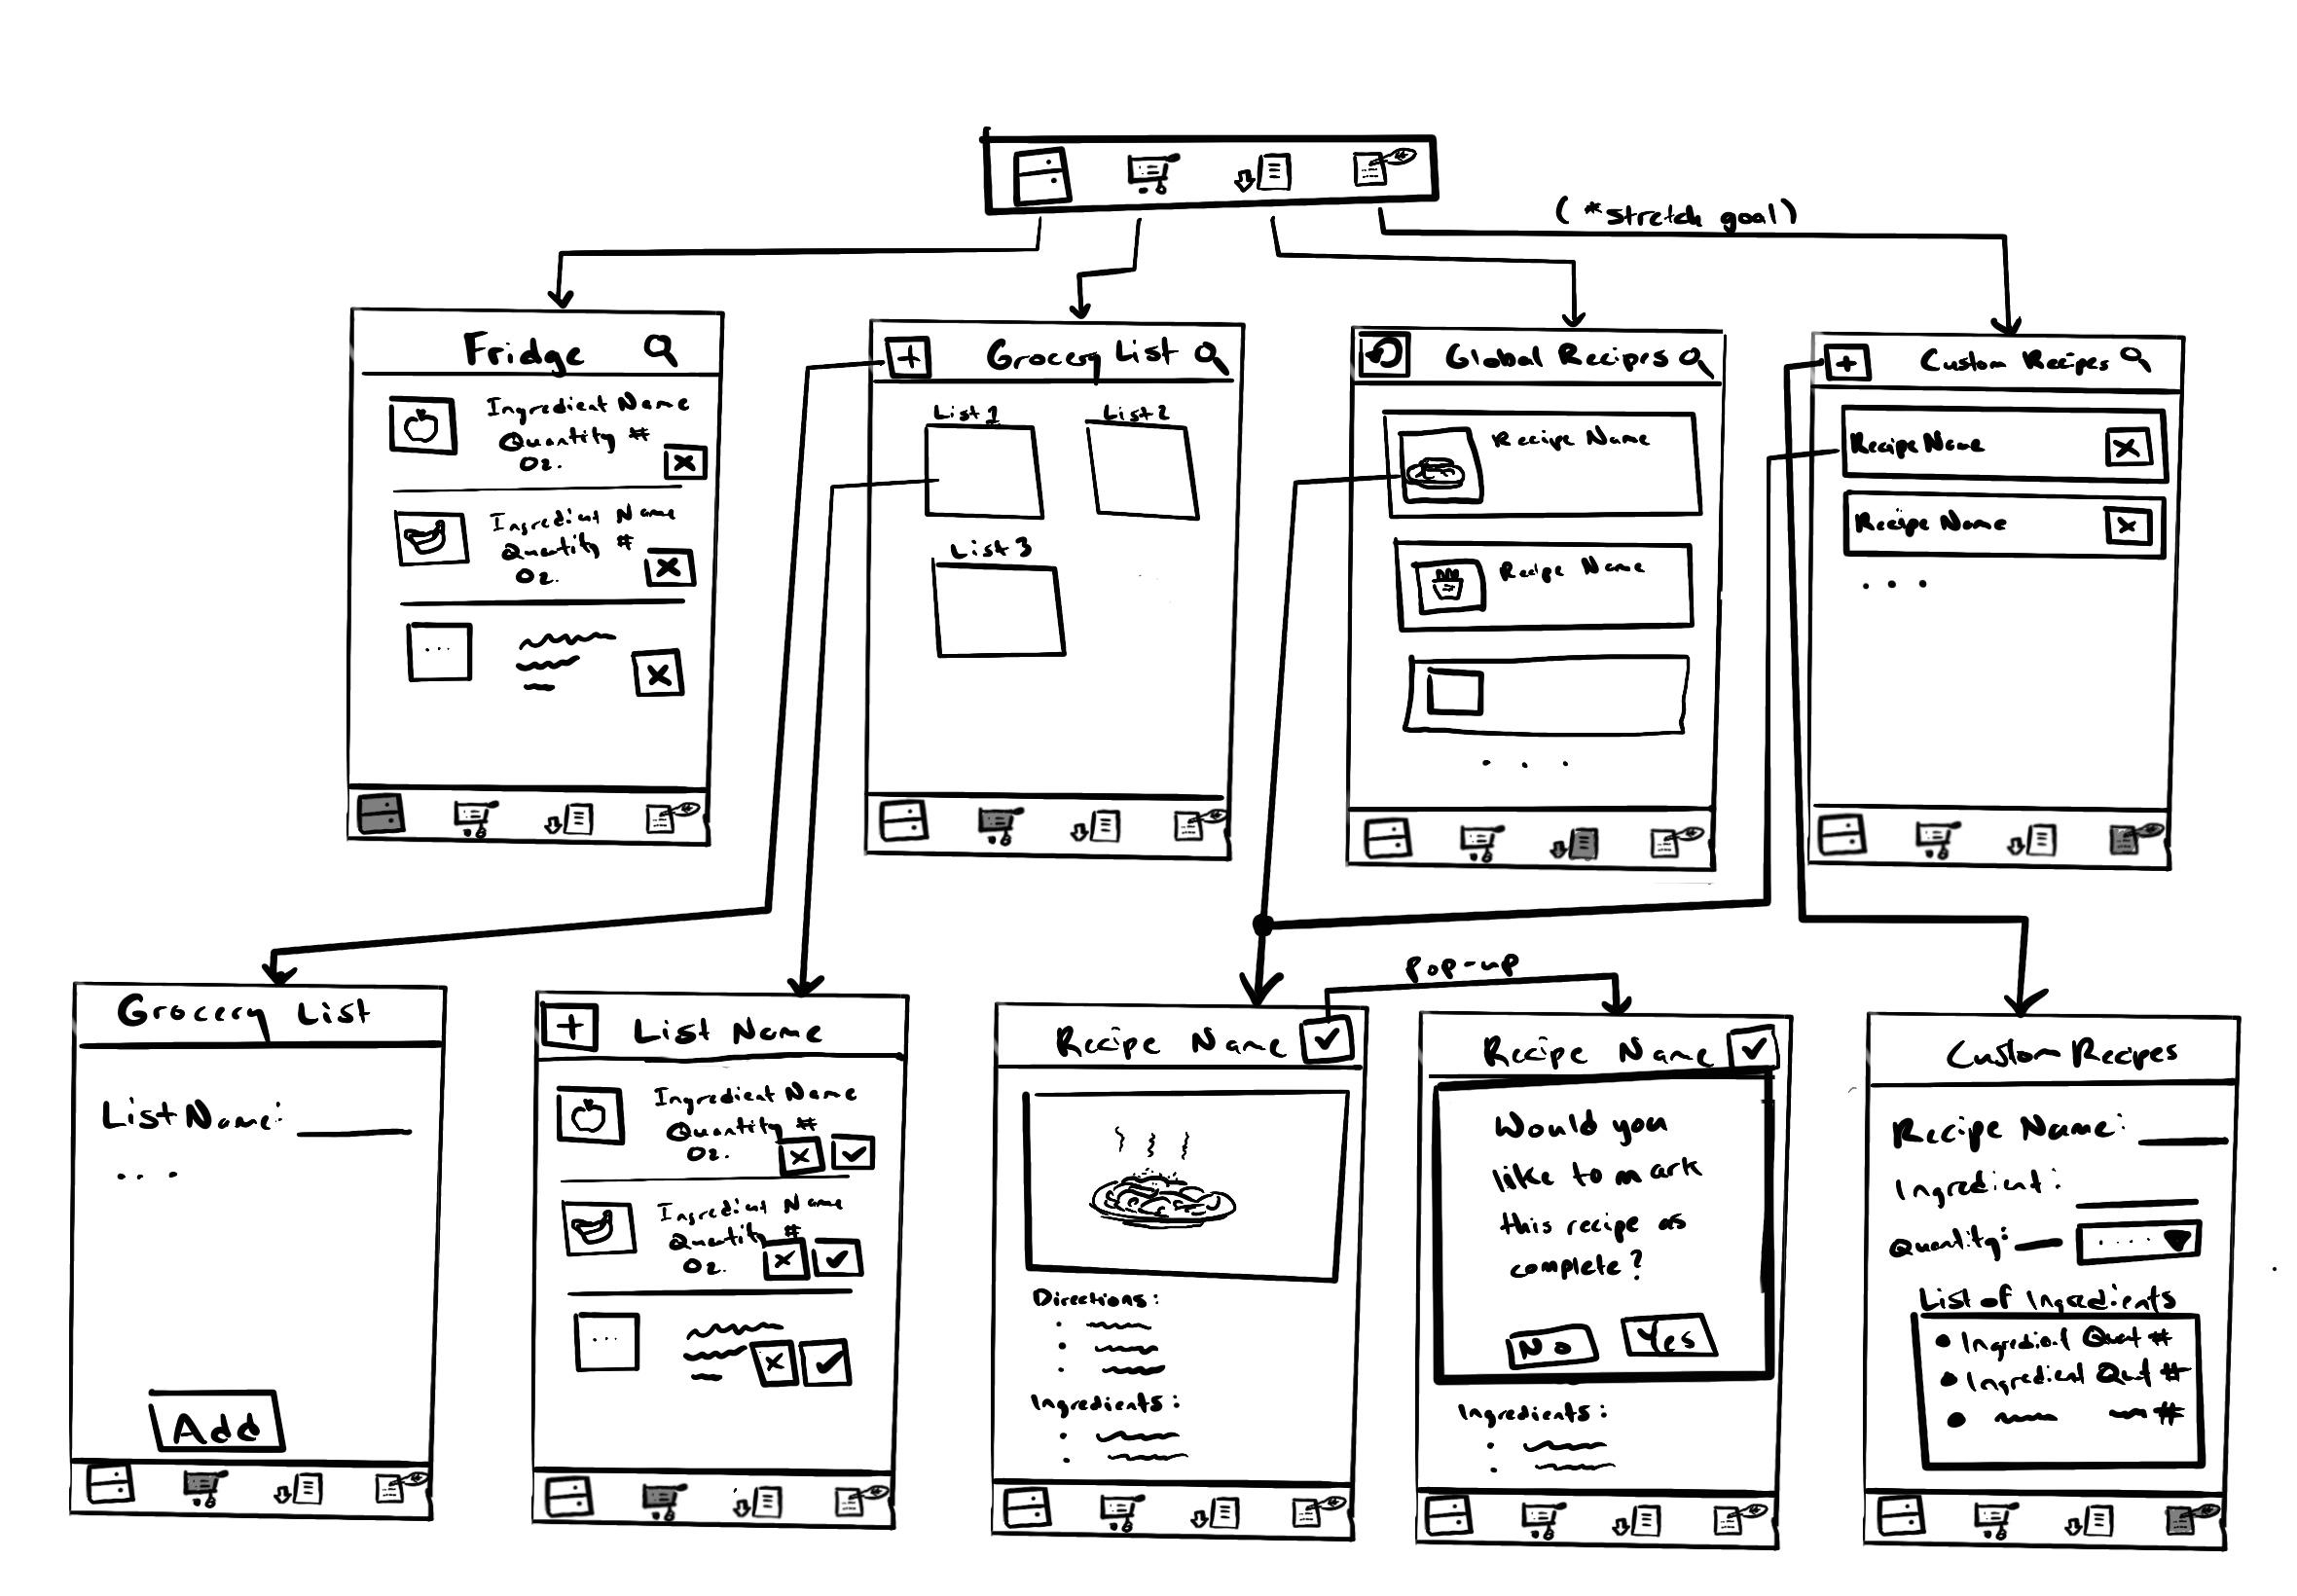 (*stretch goal)
Fridge
Ingredient Name
Quantity #
Oz.
Ingredient Name
Quantity #
Oz.
...
+
Grocery List
List 1
List 2
List 3
Global Recipes
Recipe Name
Recipe Name
. . .
+
Custom Recipes
Recipe Name
X
Recipe Name
X
. . .
Grocery List
List Name:
. . .
Add
+
List Name
Ingredient Name
Quantity #
Oz.
Ingredient Name
Quantity #
Oz.
...
Recipe Name
Directions:
Ingredients:
Pop-up
Recipe Name
Would you
like to mark
this recipe as
complete?
No
Yes
Ingredients:
Custom Recipes
Recipe Name:
Ingredient:
Quantity:
....
List of Ingredients
• Ingredient Quat #
• Ingredient Quat #
• #